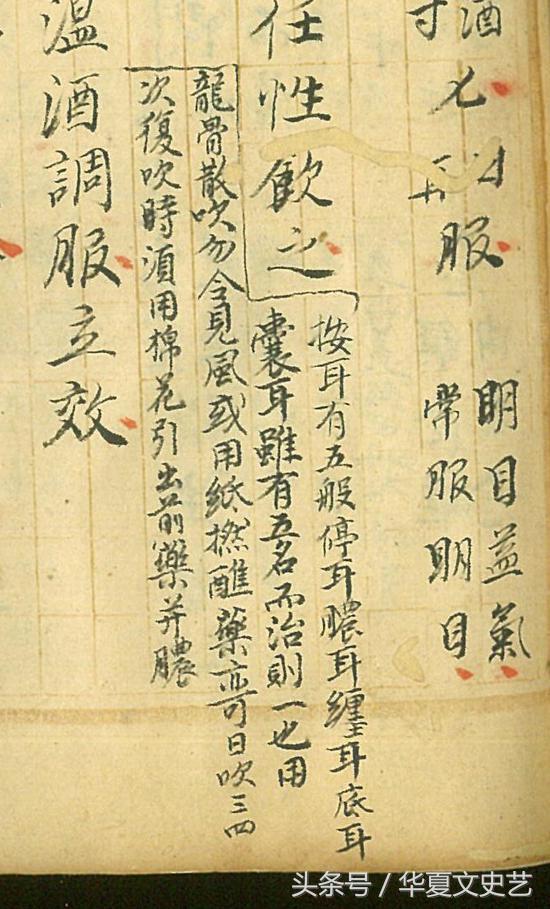 酒
寸
匕
服
再
明目益氣
常服明目
任性飲之
按耳有五般停耳膿耳纏耳底耳
囊耳雖有五名而治則一也用
龍骨散吹勿令見風或用紙撚醮藥亦可日吹三四
次復吹時須用棉花引出前藥并膿
溫酒調服立效
头条号 / 华夏文史艺